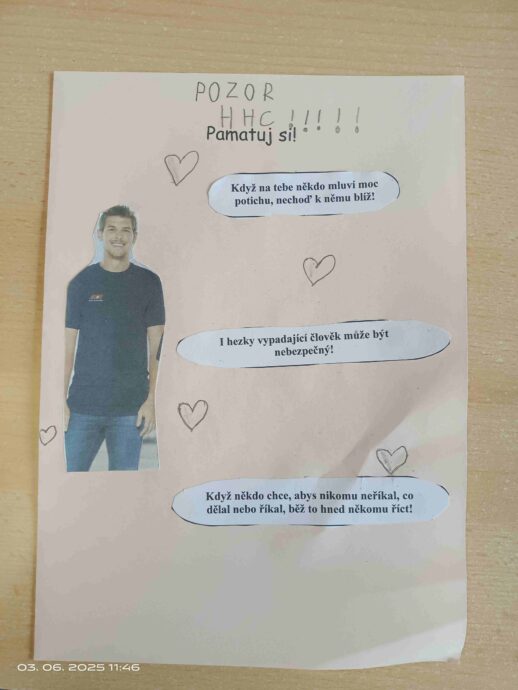 POZOR
HHC !!!!!
Pamatuj si!
Když na tebe někdo mluví moc
potichu, nechoď k němu blíž!
I hezky vypadající člověk může být
nebezpečný!
Když někdo chce, abys nikomu neříkal, co
dělal nebo říkal, běž to hned někomu říct!
03. 06. 2025 11:46